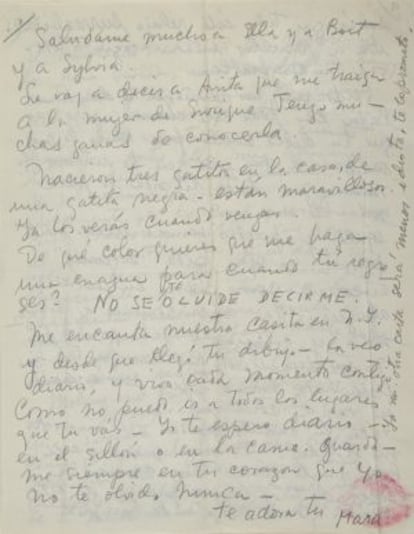 Salúdame mucho a Ella y a Boit
y a Sylvia.
Le voy a decir a Anita que me traiga
a la mujer de Enrique Tengo mu-
chas ganas de conocerla.
Nacieron tres gatitos en la casa, de
una gatita negra - están maravillosos.
Ya los verás cuando vengas.
De qué color quieres que me haga
una enagua para cuando tú regre
ses? NO SE OLVIDE DECIRME.
Me encanta nuestra casita en N.Y.
y desde que llegó tu dibujo - la veo
diario, y vivo cada momento contigo
Como no puedo ir a todos los lugares
que tu vas - Yo te espero diario -
en el sillón o en la cama. Guarda-
me siempre en tu corazón que yo
no te olvido nunca -
te adora tu Mara
otra carta será menos idiota, te lo prometo.